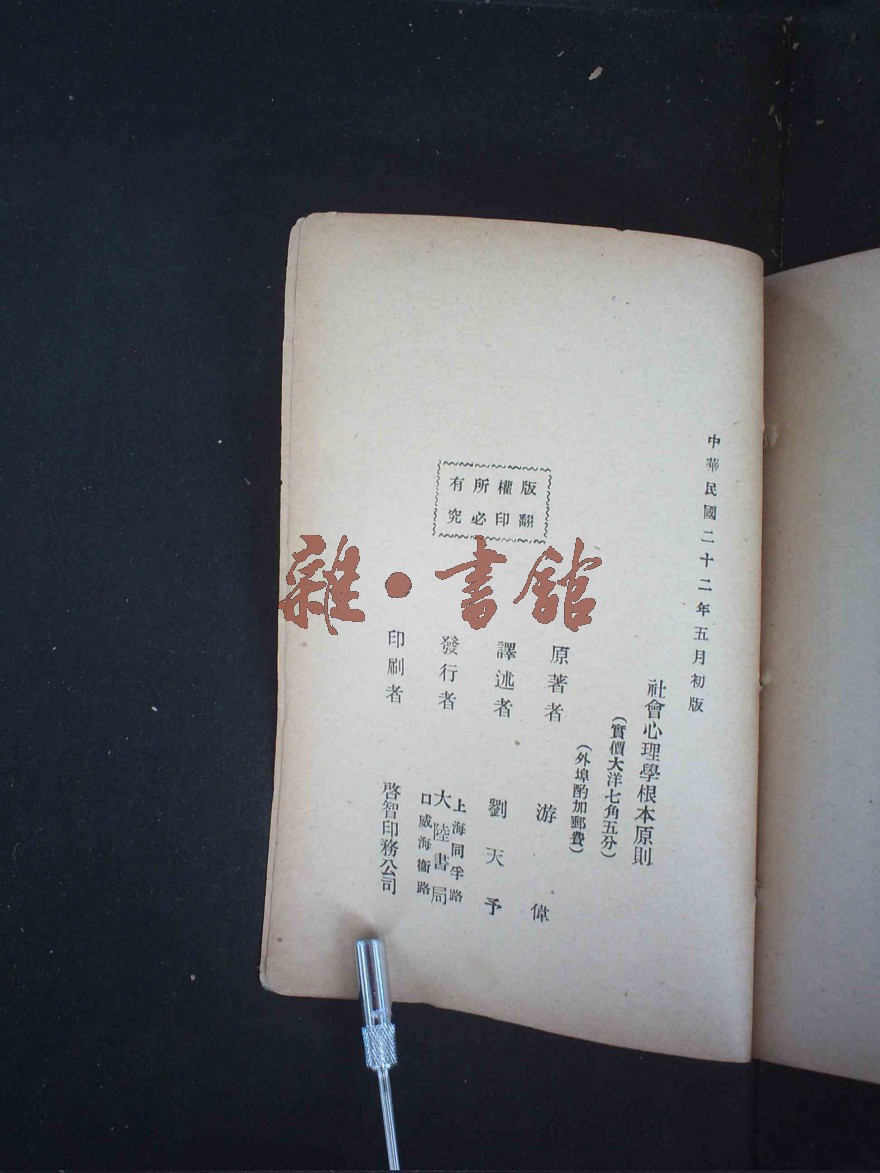 中華民國二十二年五月初版
社會心理學根本原則
(實價大洋七角五分)
(外埠酌加郵費)
原著者 游偉
譯述者 劉天予
發行者 大陸書局
上海同孚路
口威海衞路
印刷者 啓智印務公司
版權所有
翻印必究
雜·書館